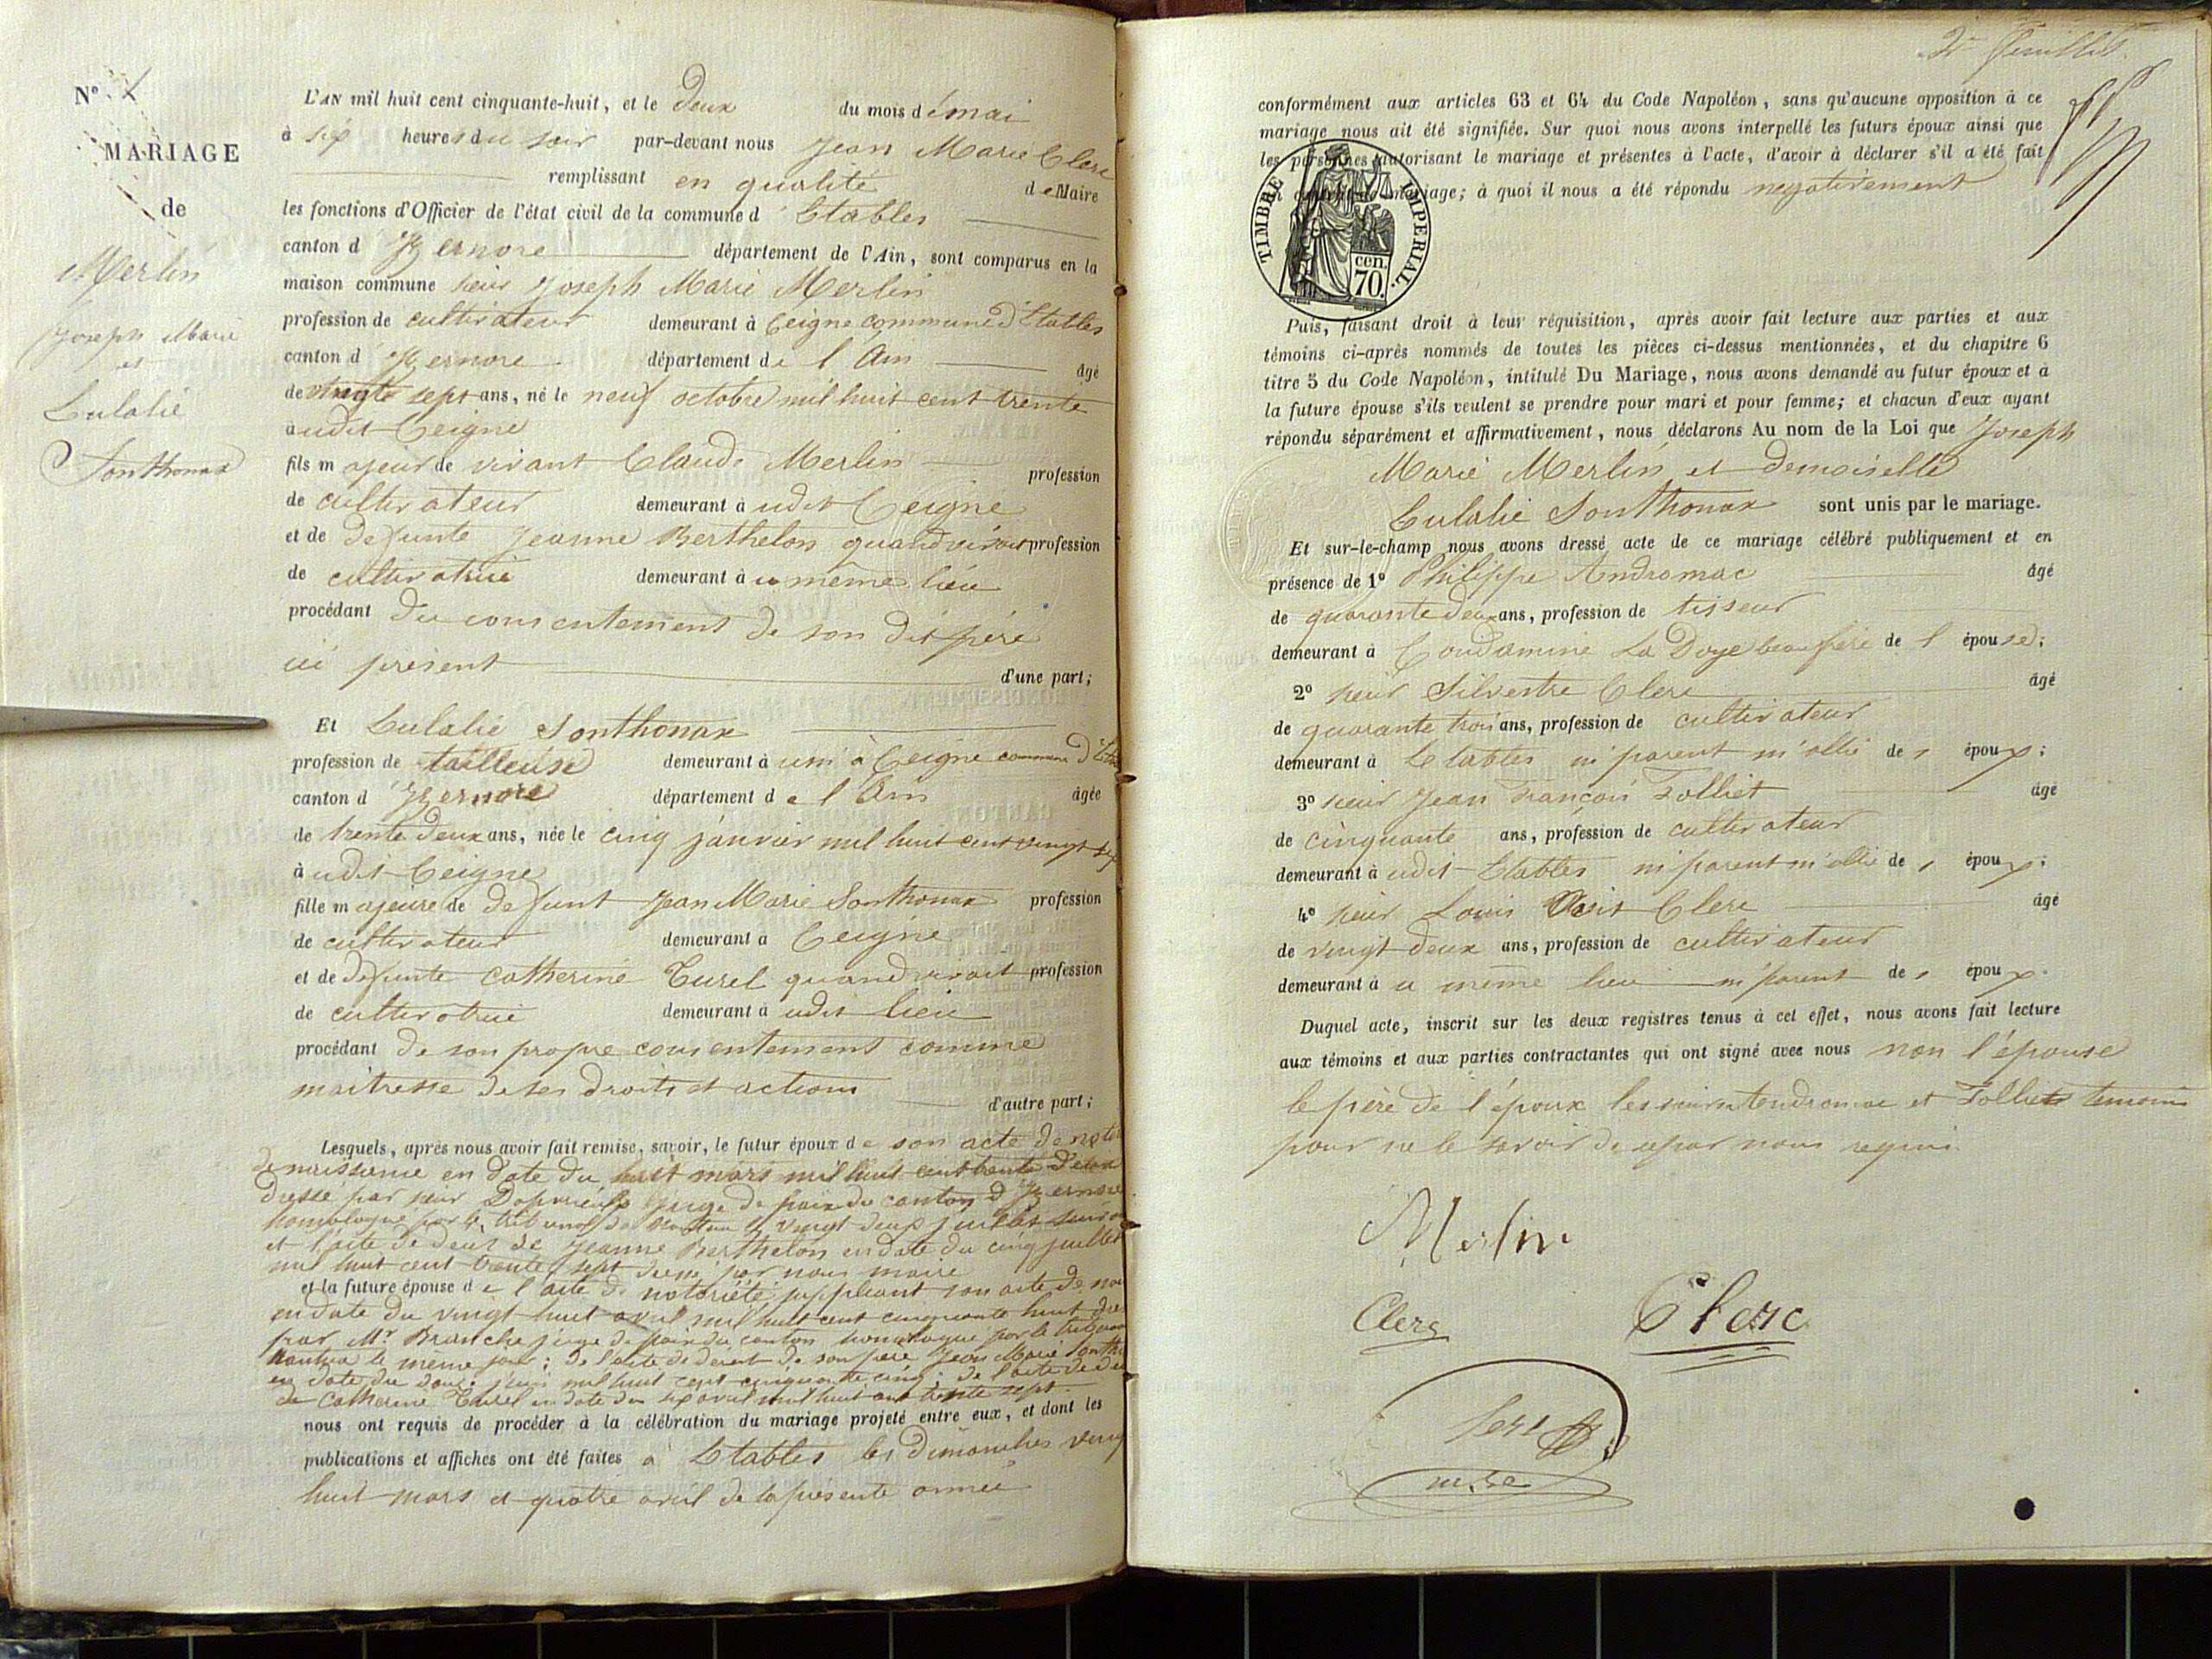 N°
MARIAGE
de
Merlin
Joseph Marie
et
Eulalie
Sonthonax
L'AN mil huit cent cinquante-huit, et le deux du mois de mai
à six heures du soir par-devant nous Jean Marie Clerc
remplissant en qualité de Maire
les fonctions d'Officier de l'état civil de la commune d'Etables
canton d'Izernore département de l'Ain, sont comparus en la
maison commune sieur Joseph Marie Merlin
profession de cultivateur demeurant à Ceigne commune d'Etables
canton d'Izernore département de l'Ain âgé
de vingt sept ans, né le neuf octobre mil huit cent trente
audit Ceigne
fils majeur de vivant Claude Merlin profession
de cultivateur demeurant audit Ceigne
et de defunte Jeanne Berthelon quand vivait profession
de cultivatrice demeurant au même lieu
procédant du consentement de son dit père
ici présent d'une part;
Et Eulalie Sonthonax
profession de tailleuse demeurant à Ceigne commune d'
canton d'Izernore département de l'Ain âgée
de trente deux ans, née le cinq janvier mil huit cent vingt six
audit Ceigne
fille majeure de defunt Jean Marie Sonthonax profession
de cultivateur demeurant a Ceigne
et de defunte Catherine Turel quand vivait profession
de cultivatrice demeurant audit lieu
procédant de son propre consentement comme
maitresse de ses droits et actions
d'autre part;
Lesquels, après nous avoir fait remise, savoir, le futur époux de son acte de
de naissance en date du huit mars mil huit cent trente deux
dressé par sieur juge de paix du canton d'Izernore
homologué par le tribunal de Nantua le vingt deux juillet
et l'acte de décès de Jeanne Berthelon en date du cinq juillet
mil huit cent trente sept dressé par nous maire
et la future épouse de l'acte de notoriété suppléant son acte de
en date du vingt huit avril mil huit cent cinquante huit
par Mr Branche juge de paix du canton homologué par le tribunal
Nantua le même jour; de l'acte de décès de son père Jean Marie
en date du douze juin mil huit cent cinquante cinq; de l'acte de
de Catherine Turel en date du six avril mil huit cent trente sept
nous ont requis de procéder à la célébration du mariage projeté entre eux, et dont les
publications et affiches ont été faites à Etables les dimanches vingt
huit mars et quatre avril de la présente année
2e feuillet
conformément aux articles 63 et 64 du Code Napoléon, sans qu'aucune opposition à ce
mariage nous ait été signifiée. Sur quoi nous avons interpellé les futurs époux ainsi que
les personnes autorisant le mariage et présentes à l'acte, d'avoir à déclarer s'il a été fait
un contrat de mariage; à quoi il nous a été répondu negativement
TIMBRE IMPERIAL.
cen.
70.
Puis, faisant droit à leur réquisition, après avoir fait lecture aux parties et aux
témoins ci-après nommés de toutes les pièces ci-dessus mentionnées, et du chapitre 6
titre 5 du Code Napoléon, intitulé Du Mariage, nous avons demandé au futur époux et à
la future épouse s'ils veulent se prendre pour mari et pour femme; et chacun d'eux ayant
répondu séparément et affirmativement, nous déclarons Au nom de la Loi que Joseph
Marie Merlin et demoiselle
Eulalie Sonthonax sont unis par le mariage.
Et sur-le-champ nous avons dressé acte de ce mariage célébré publiquement et en
présence de 1° Philippe Andromac âgé
de quarante deux ans, profession de tisseur
demeurant à Condamine La Doye beau frère de l'épouse;
2° sieur Silvestre Clerc âgé
de quarante trois ans, profession de cultivateur
demeurant à Etables ni parent ni allié des époux;
3° sieur Jean François Folliet âgé
de cinquante ans, profession de cultivateur
demeurant audit Etables ni parent ni allié des époux;
4° sieur Louis Clerc âgé
de vingt deux ans, profession de cultivateur
demeurant au même lieu ni parent des époux.
Duquel acte, inscrit sur les deux registres tenus à cet effet, nous avons fait lecture
aux témoins et aux parties contractantes qui ont signé avec nous non l'épouse
le père de l'époux les sieurs Andromac et Folliet temoins
pour ne le savoir de ce par nous requis
Merlin
Clerc
Clerc